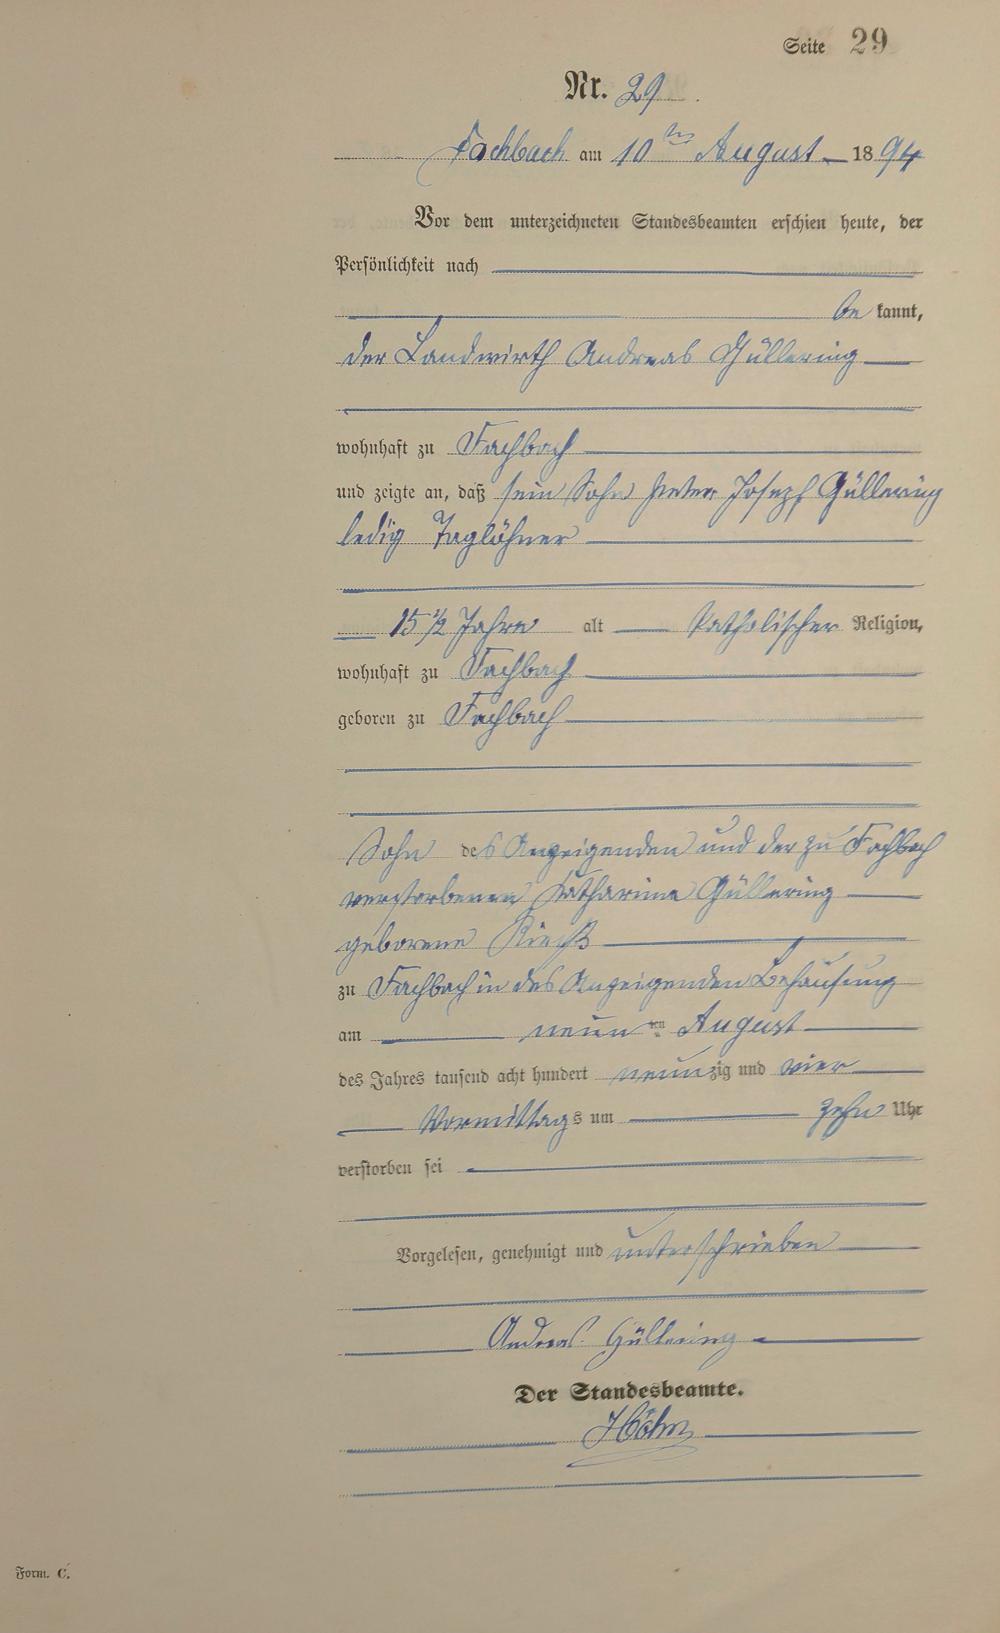 Seite 29
Nr. 29
Fachbach am 10ten August 1894
Vor dem unterzeichneten Standesbeamten erschien heute, der
Persönlichkeit nach
be kannt,
der Landwirth Andreas Güllering
wohnhaft zu Fachbach
und zeigte an, daß sein Sohn Peter Joseph Güllering
ledig Taglöhner
15 1/2 Jahre alt katholischer Religion,
wohnhaft zu Fachbach
geboren zu Fachbach
Sohn des Anzeigenden und der zu Fachbach
verstorbenen Katharina Güllering
geborene
zu Fachbach in des Anzeigenden Behausung
am neunten August
des Jahres tausend acht hundert neunzig und vier
Vormittags um zehn Uhr
verstorben sei
Vorgelesen, genehmigt und unterschrieben
Andreas Güllering
Der Standesbeamte.
Höhn
Form. C.